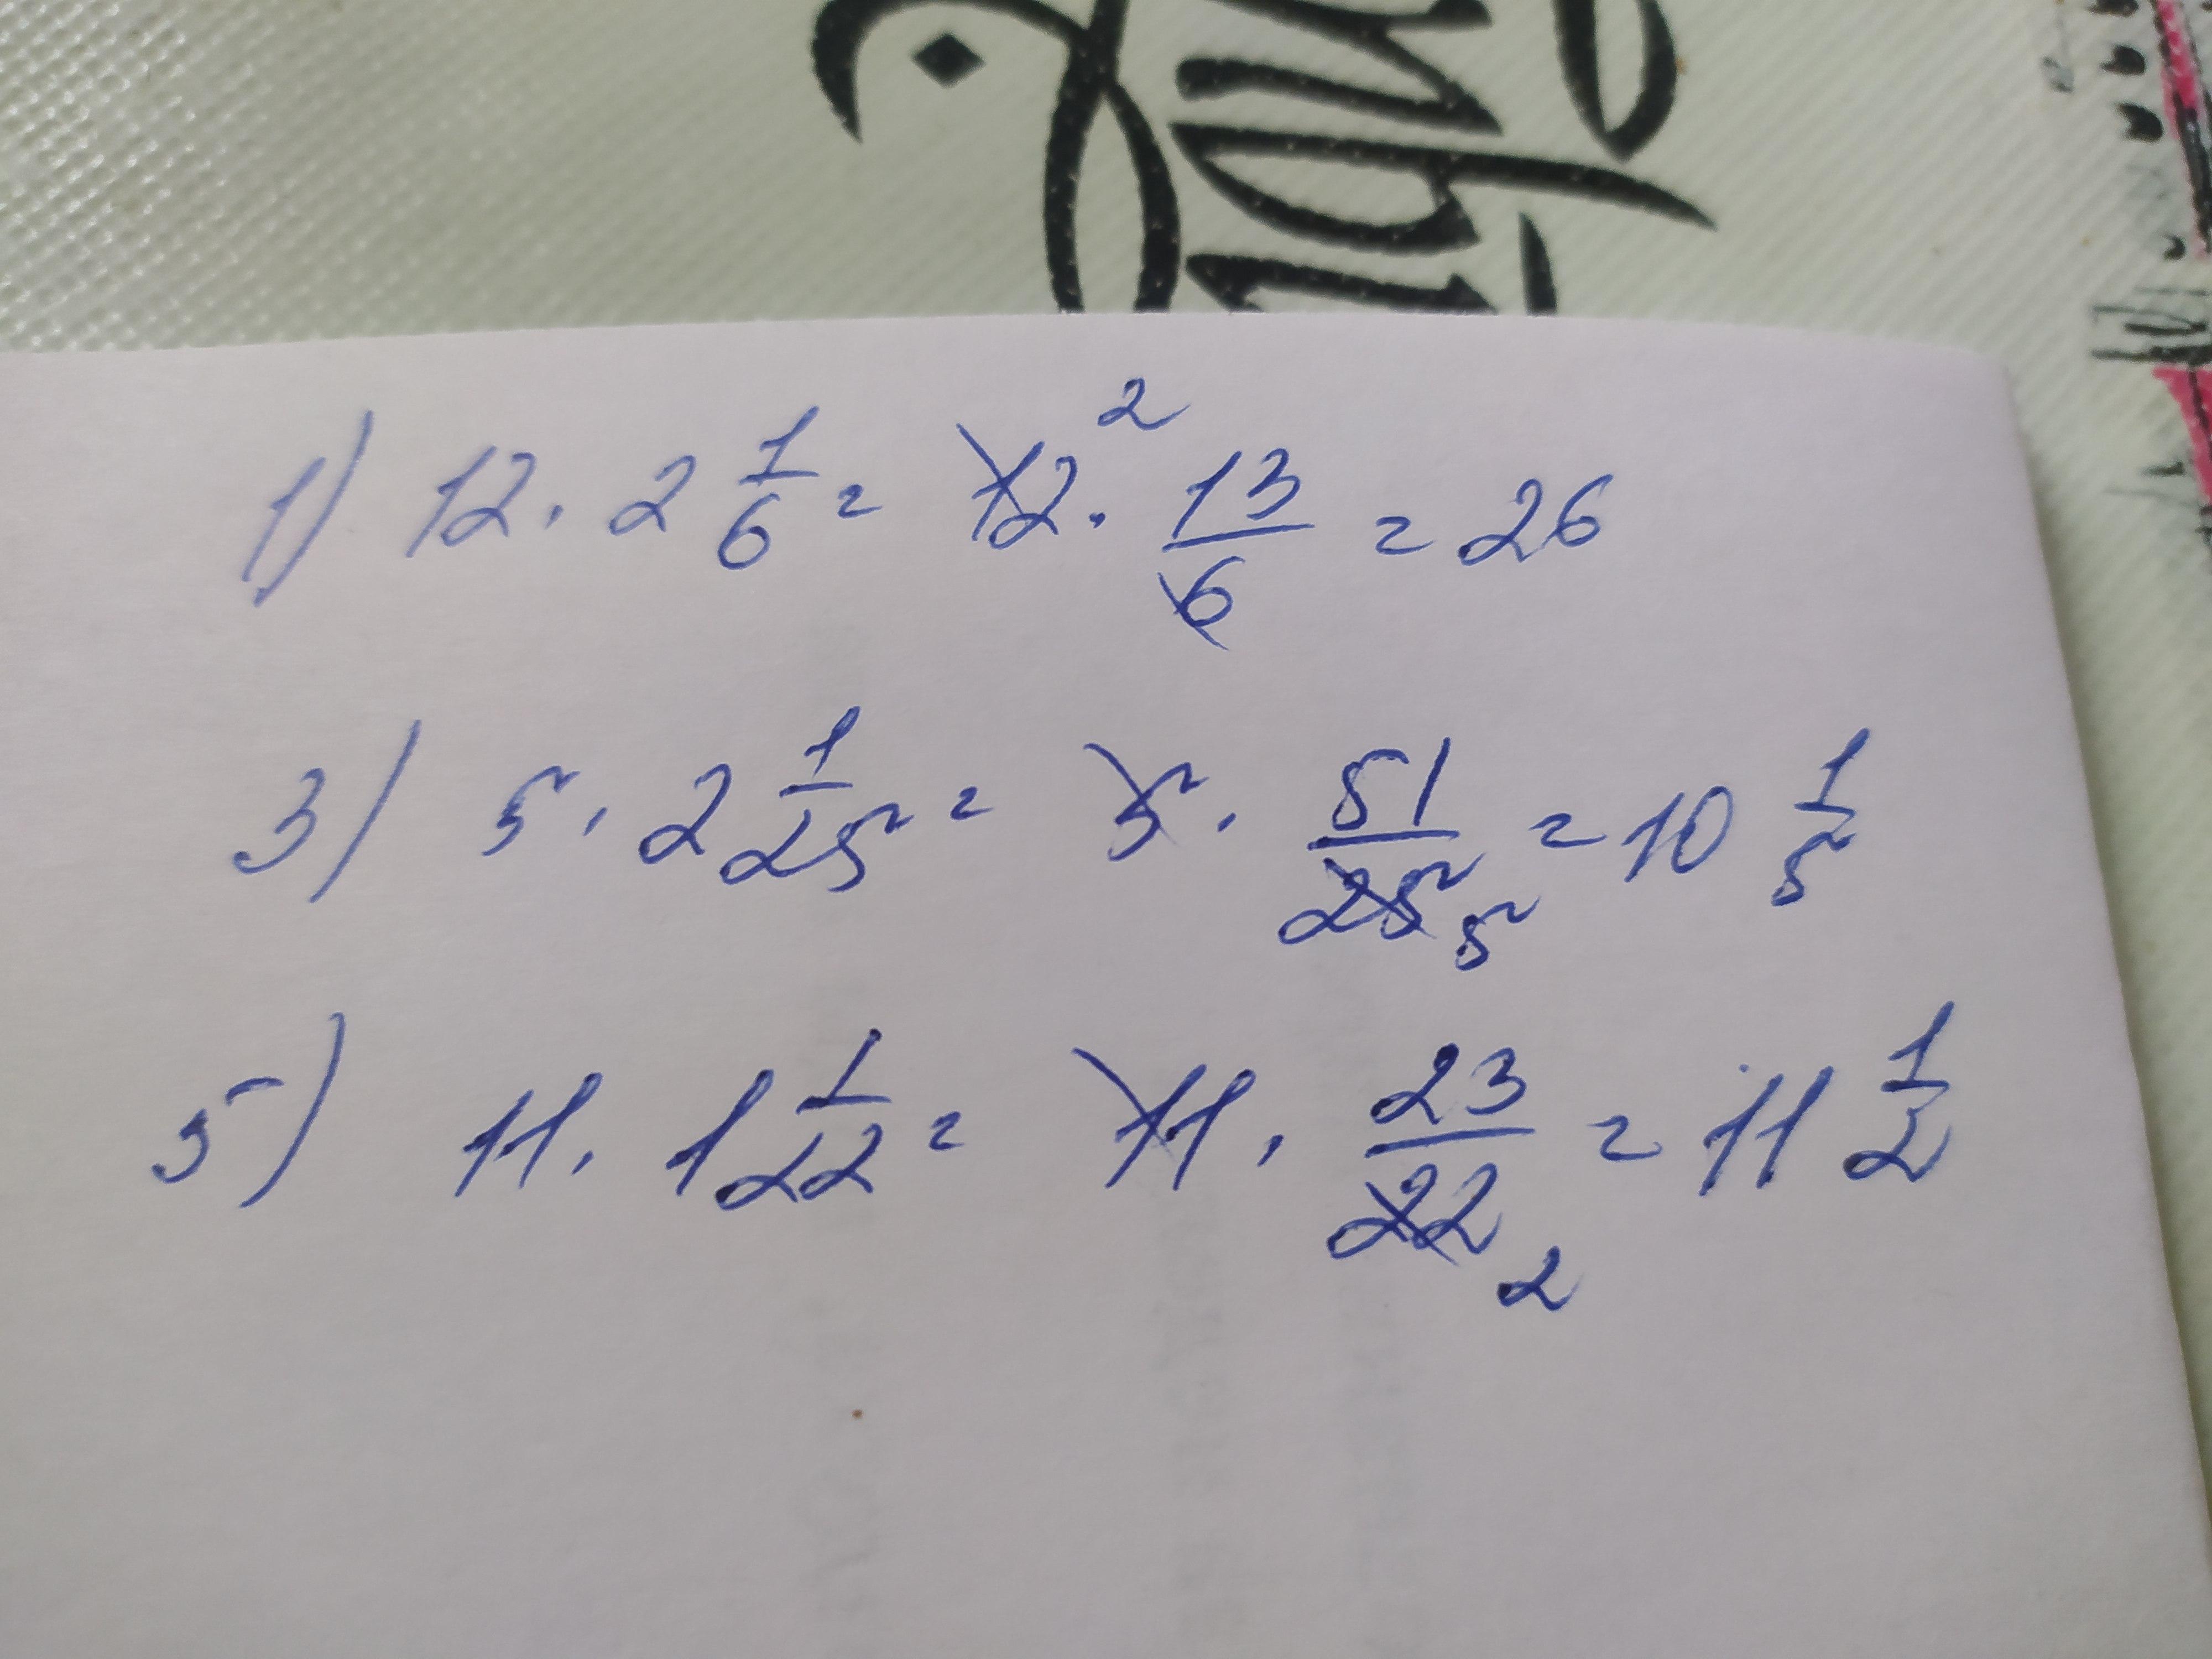 1) 12 · 2 1/6 = 12 2 · 13/6 = 26
3) 5 · 2 1/25 = 5 · 51/25 5 = 10 1/5
5) 11 · 1 1/22 = 11 · 23/22 2 = 11 1/2